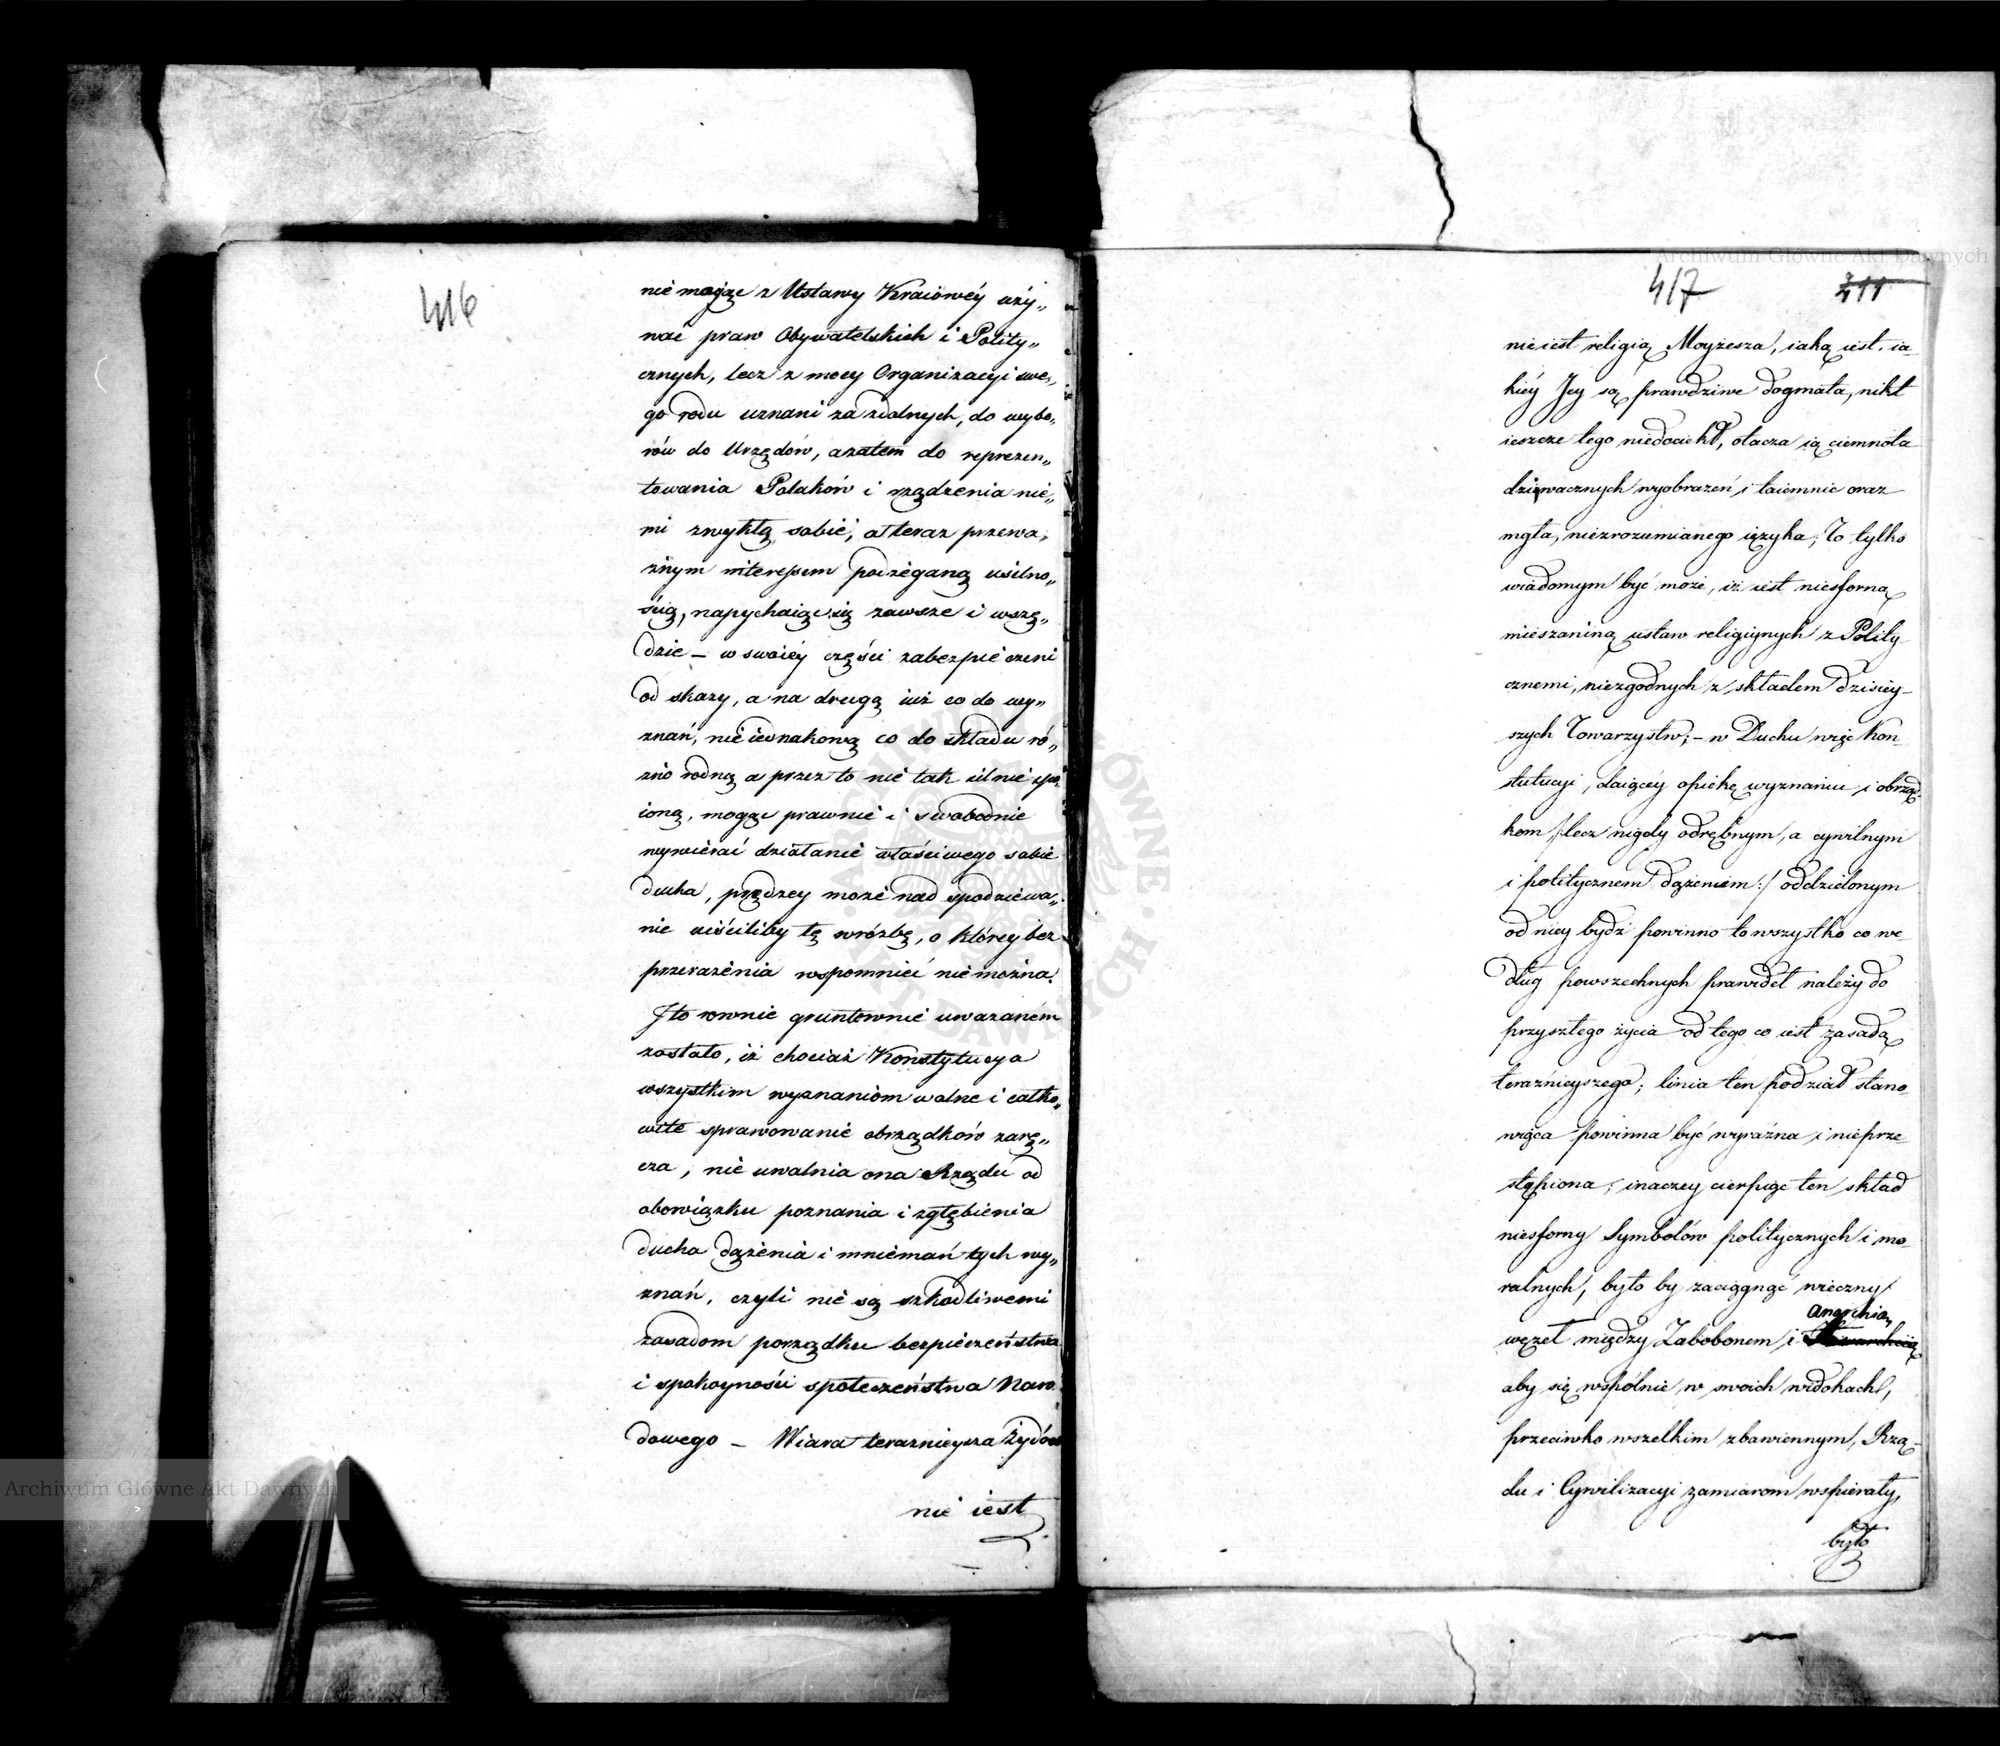 416
nie mogąc z Ustawy Kraiowéy uży„
wać praw Obywatelskich i Polity„
cznych, lecz z mocy Organizacyi swe„
go rodu uznani za zdolnych, do wybo„
rów do Urzędów, azatem do reprezen„
towania Polaków i rządzenia nie„
mi zwykłą sobie, a teraz przewa„
żnym interessem podżeganą usilno„
ścią, napychaiąc się zawsze i wszę„
dzie – w swoiéy części zabezpieczeni
od skazy, a na drugą iuż co do wy„
znań, nieiednakową co do składu ró„
żno rodną a przez to nie tak silnie spo„
ioną, mogąc prawnie i swobodnie
wywierać działanie właściwego sobie
ducha, prędzey może nad spodziewa„
nie uiściliby tę wróżbę, o którey bez
przerażenia wspomnieć nie można.
I to rownie gruntownie uważaném
zostało, iż chociaż Konstytucya
wszystkim wyznaniom wolne i całko„
wite sprawowanie obrządków zarę„
cza, nie uwalnia ona Rządu od
obowiązku poznania i zgłębienia
ducha dążenia i mniemań tych wy„
znań, czyli nie są szkodliwemi
zasadom porządku bezpieczeństwa
i spokoyności społeczeństwa Naro
dowego – Wiara teraznieysza Żydów
nie iest
417 211
nie iest religią Moyżesza, iaką iest, ia-
kiéy Jey są prawdziwe dogmata, nikt
ieszcze tego niedociekł, otacza ią ciemnota
dziwacznych wyobrażeń i taiemnic oraz
mgła, niezrozumianego ięzyka; To tylko
wiadomym być może, iż iest niesforną
mieszaniną ustaw religiynych z Polity
cznemi, niezgodnych z składem dzisiey-
szych Towarzystw; – w Duchu więc Kon-
stutucyi, daiącéy opiekę wyznaniu i obrząd-
kom /: lecz nigdy odrębnym, a cywilnym
i politycznem dążeniem :/ oddzielonym
od niey bydź powinno to wszystko co we-
dług powszechnych prawideł należy do
przyszłego życia od tego co iest zasadą
teraźnieyszego; linia ten podział stano-
wiąca powinna być wyraźna i nieprze-
stępiona; inaczey cierpiąc ten skład
niesforny Symbolów politycznych i mo-
ralnych, było by zaciągnąć wieczny
anarchią
węzeł między Zabobonem i
aby się wspólnie w swoich widokach,
przeciwko wszelkim zbawiennym, Rzą-
du i Cywilizacyi zamiarom wspierały,
było
Archiwum Główne Akt Dawnych
Archiwum Główne Akt Dawnych